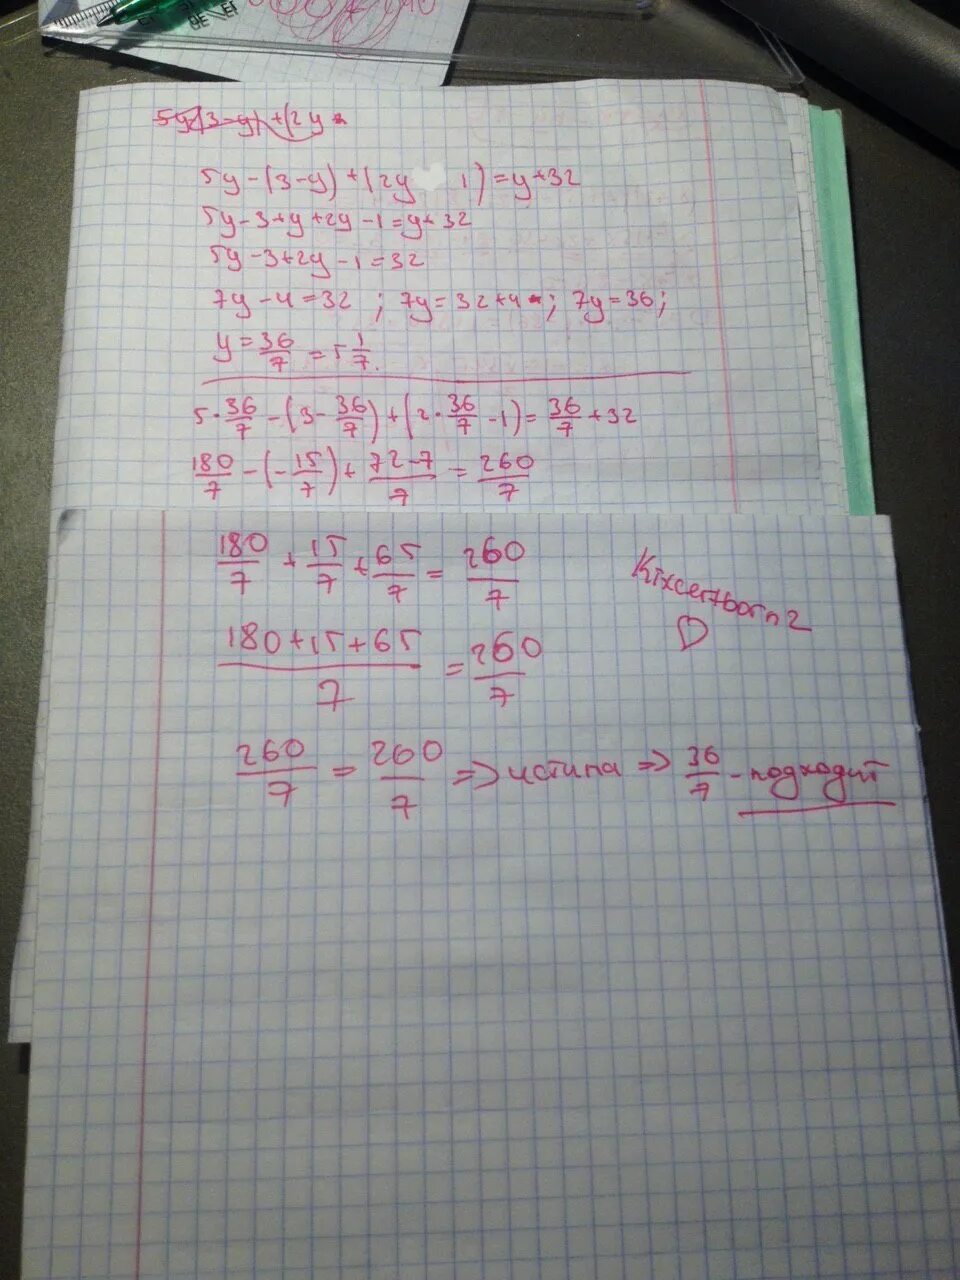 5y-(3-y)+(2y
5y-(3-y)+(2y 1)=y+32
5y-3+y+2y-1=y+32
5y-3+2y-1=32
7y-4=32 ; 7y=32+4 ; 7y=36;
y=36/7=5 1/7.
5·36/7-(3-36/7)+(2·36/7-1)=36/7+32
180/7-(-15/7)+(72-7)/7=260/7
180/7+15/7+65/7=260/7
(180+15+65)/7=260/7
260/7=260/7=>истина=>36/7-подходит